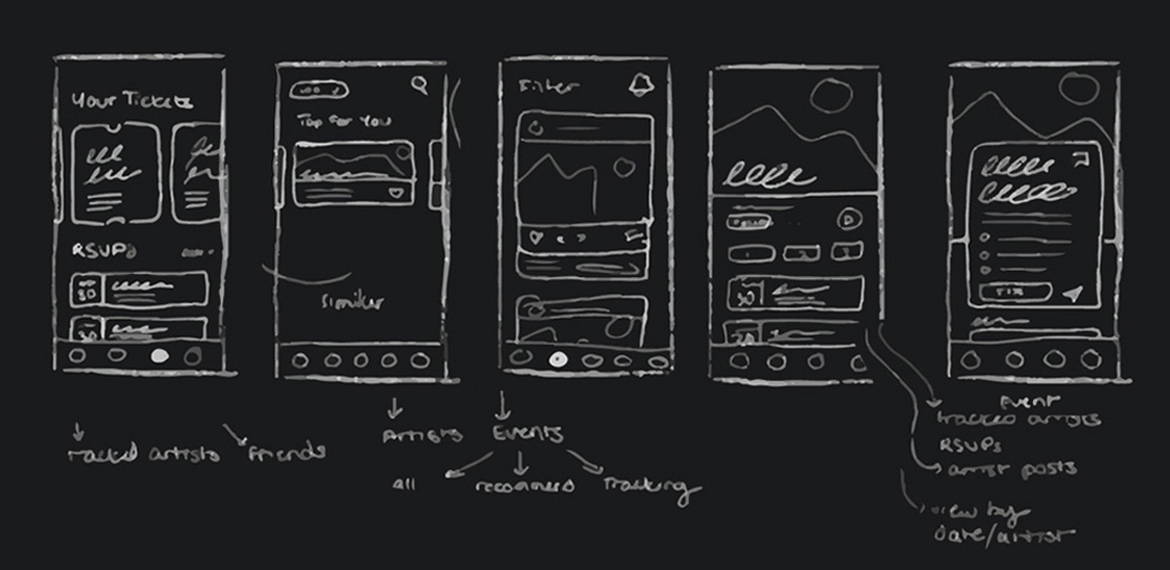 Your Tickets
RSVPs
30
30
Top For You
similar
Filter
30
20
TIX
tracked artists
friends
Artists
Events
all
recommend
Tracking
Event
tracked artists
RSVPs
artist posts
view by
date/artist